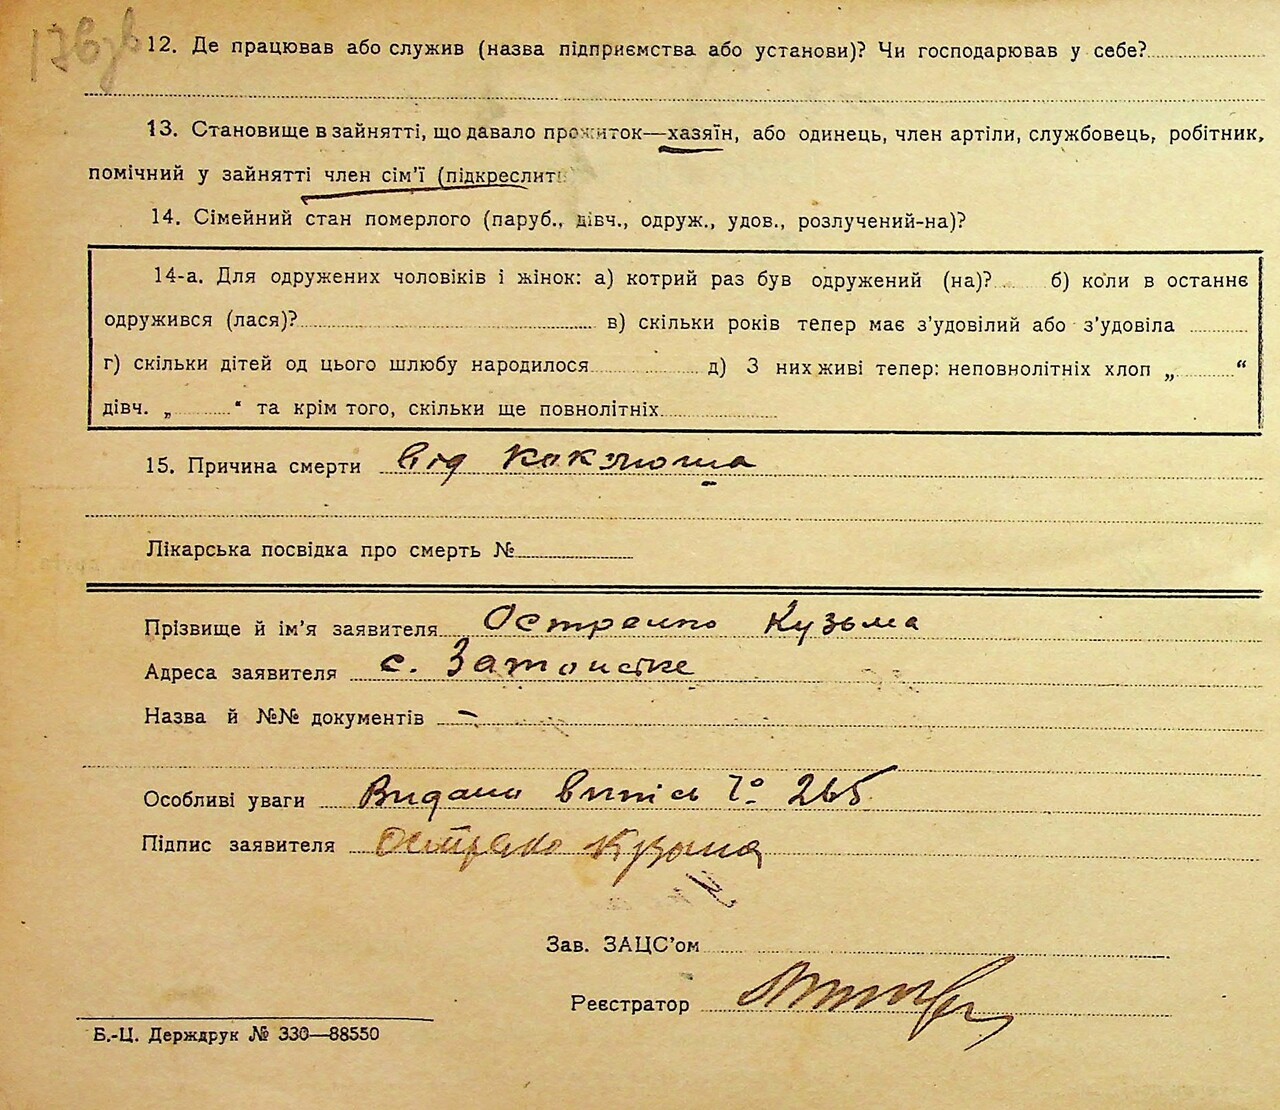 176зв
12. Де працював або служив (назва підприємства або установи)? Чи господарював у себе?
13. Становище в зайнятті, що давало прожиток—хазяїн, або одинець, член артіли, службовець, робітник,
помічний у зайнятті член сім'ї (підкреслить
14. Сімейний стан померлого (паруб., дівч., одруж., удов., розлучений-на)?
14-а. Для одружених чоловіків і жінок: а) котрий раз був одружений (на)? б) коли в останнє
одружився (лася)? в) скільки років тепер має з'удовілий або з'удовіла
г) скільки дітей од цього шлюбу народилося д) З них живі тепер: неповнолітніх хлоп „ “
дівч. „ “ та крім того, скільки ще повнолітніх
15. Причина смерти від коклюша
Лікарська посвідка про смерть №
Прізвище й ім'я заявителя Кузьма
Адреса заявителя с.
Назва й №№ документів –
Особливі уваги Видано випись № 265
Підпис заявителя Кузьма
Зав. ЗАЦС'ом
Реєстратор
Б.-Ц. Держдрук № 330—88550